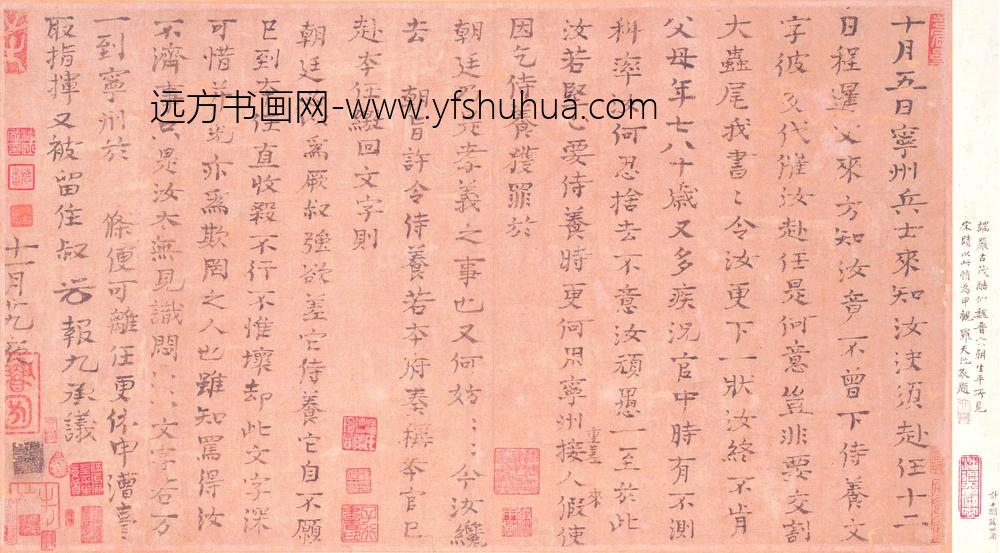 十月五日寧州兵士來知汝決須赴任十二
日程暹父來方知汝竟不曾下侍養文
字彼交代催汝赴任是何意豈非要交割
大蟲尾我書〻令汝更下一狀汝終不肯
父母年七八十歲又多疾況官中時有不測
科率汝何忍捨去不意汝頑愚一至於此
汝若堅心要侍養時更何用寧州接人假使
重差 來
因乞侍養獲罪於
朝廷乃是孝義之事也又何妨〻〻今汝纔
去 朝旨許令侍養若本府奏稱本官已
赴李任繳回文字則
朝廷以為厥叔強欲差它侍養它自不願
已到本任直收殺不行不惟壞却此文字深
可惜并光亦為欺罔之人也雖知罵得汝
不濟事只是汝太無見識悶〻〻〻文字右万
一到寧州於 條便可離任更休申漕臺
取指揮又被留住叔 光報九承議
十一月
遠方书画网-www.yfshuhua.com
端嚴古茂酷似魏晉六朝生平所見
宋蹟以此幀為甲觀 羅天池敬題